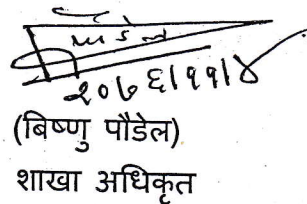 पौडेल
२०७६।११।४
(बिष्णु पौडेल)
शाखा अधिकृत